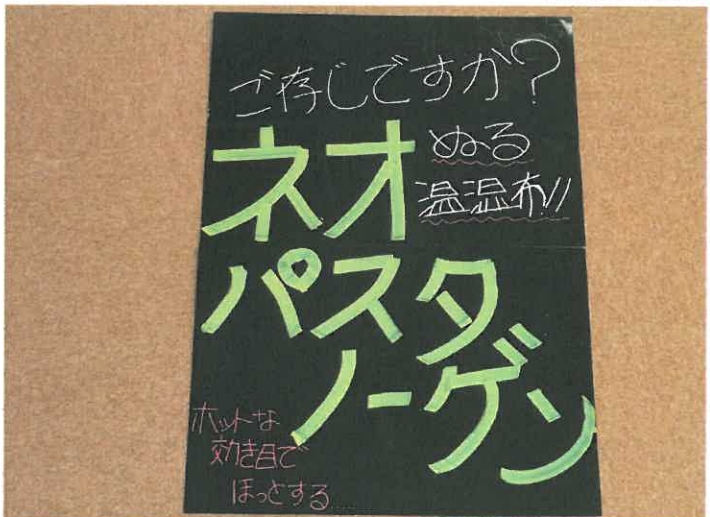 ご存じですか?
ネオ
ぬる
温湿布!!
パスタ
ノーゲン
ホットな
効き目で
ほっとする....